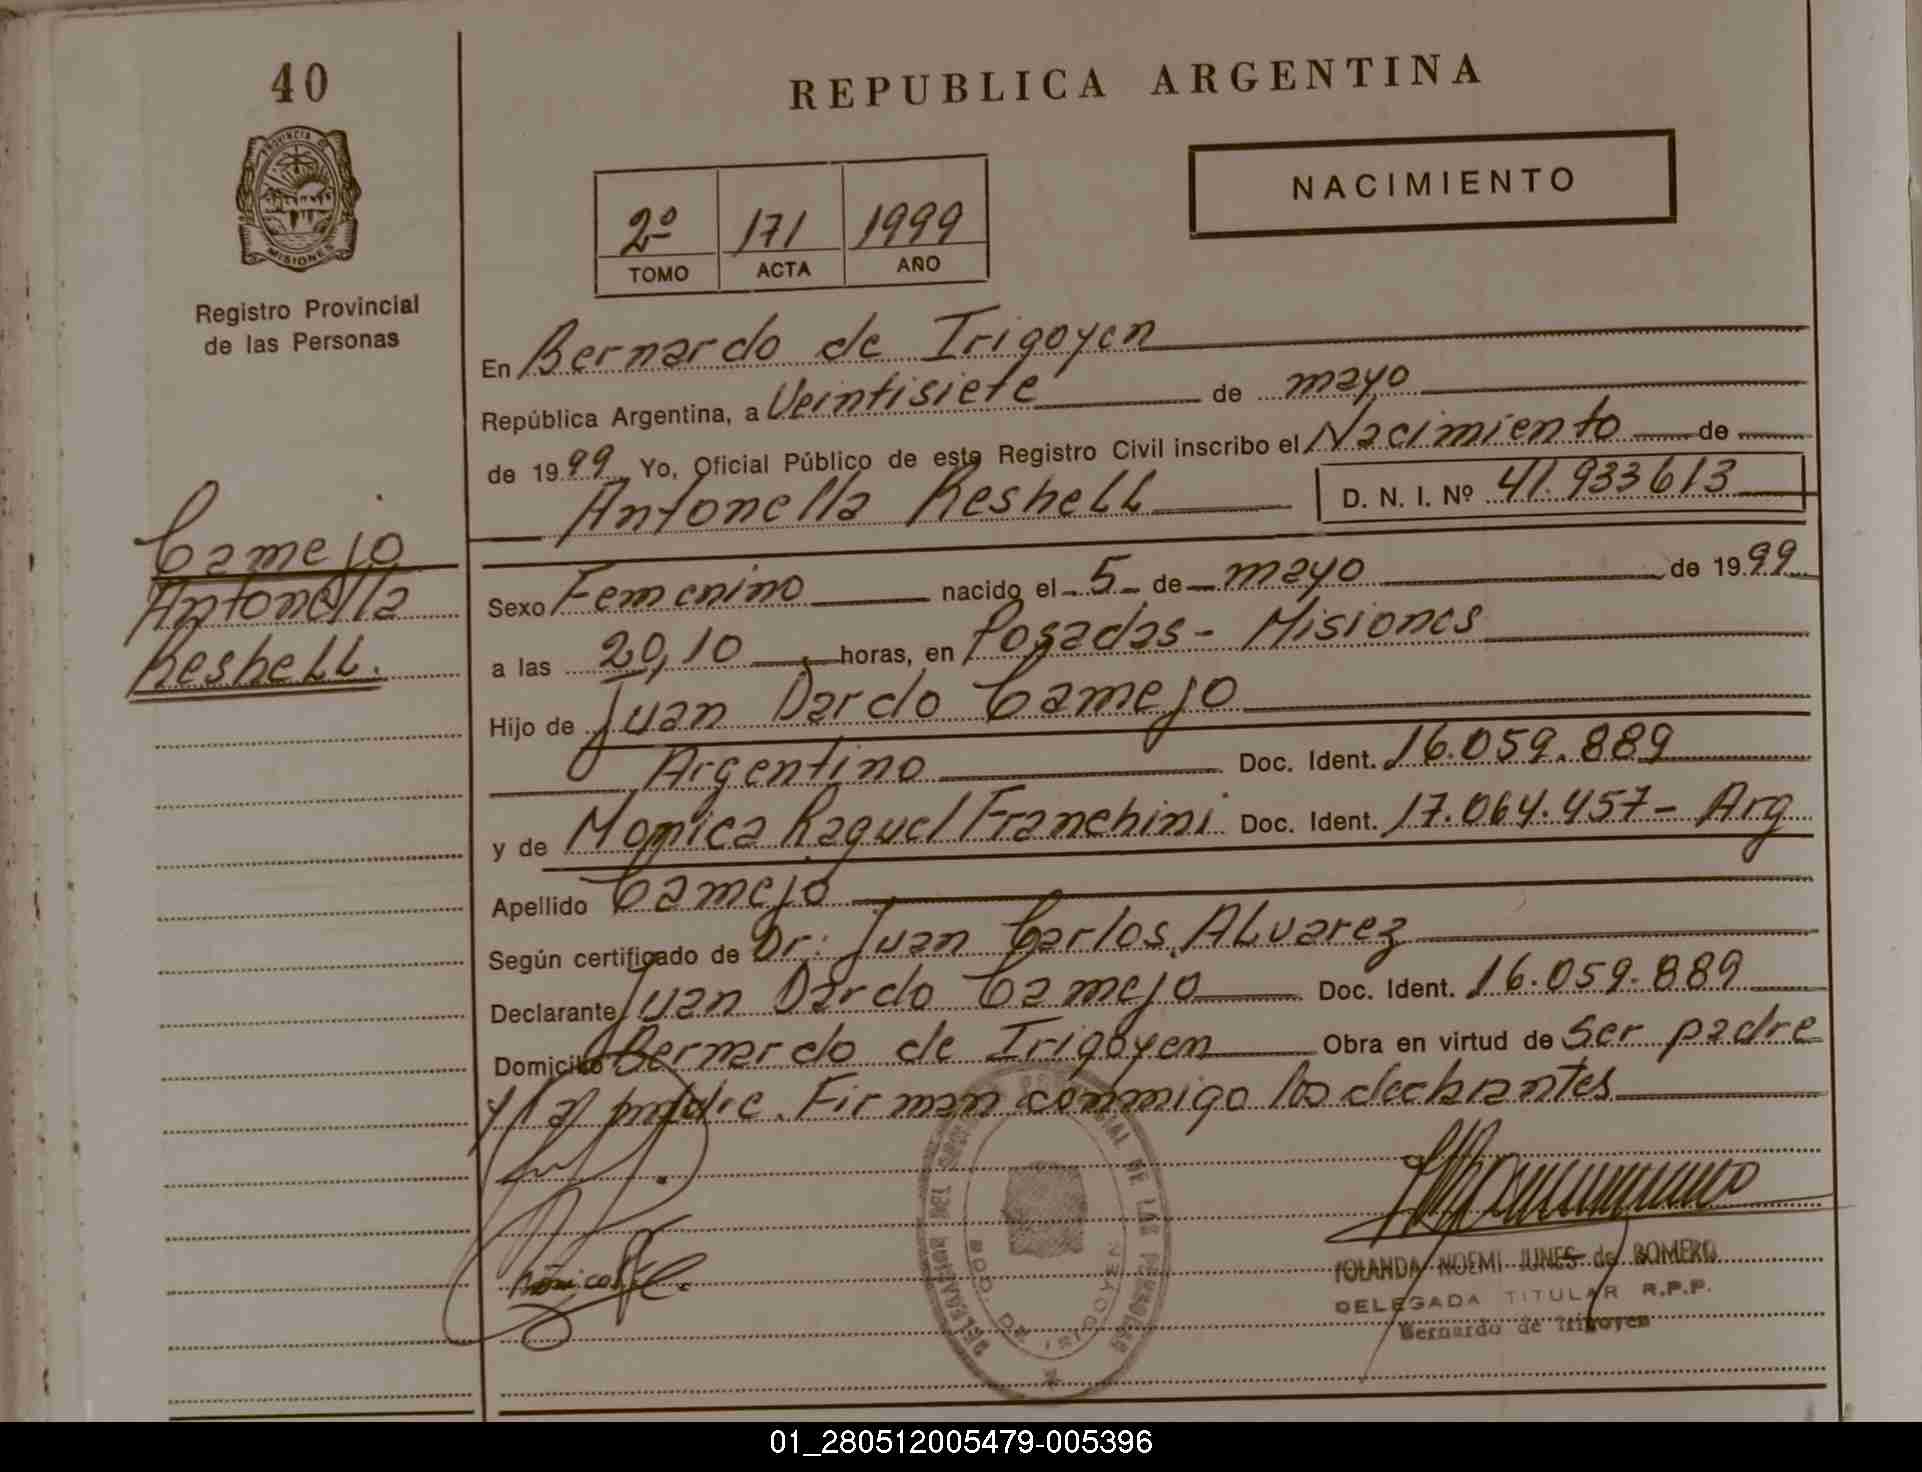 40
PROVINCIA DE
MISIONES
Registro Provincial
de las Personas
Camejo
Antonella
Keshell.
REPUBLICA ARGENTINA
NACIMIENTO
2º 171 1999
TOMO ACTA AÑO
En Bernardo de Irigoyen
República Argentina, a Veintisiete de mayo
de 1999 Yo, Oficial Público de este Registro Civil inscribo el Nacimiento de
Antonella Keshell D. N. I. Nº 41.933613
Sexo Femenino nacido el 5 de mayo de 1999
a las 20,10 horas, en Posadas - Misiones
Hijo de Juan Dardo Camejo
Argentino Doc. Ident. 16.059.889
y de Monica Raquel Franchini Doc. Ident. 17.064.457 - Arg
Apellido Camejo
Según certificado de Dr: Juan Carlos Alvarez
Declarante Juan Dardo Camejo Doc. Ident. 16.059.889
Domicilio Bernardo de Irigoyen Obra en virtud de ser padre
y la madre. Firman conmigo los declarantes
DELEGACION DEL REGISTRO PROVINCIAL DE LAS PERSONAS
BDO. DE IRIGOYEN
YOLANDA NOEMI JUNES de ROMERO
DELEGADA TITULAR R.P.P.
Bernardo de Irigoyen
01_280512005479-005396